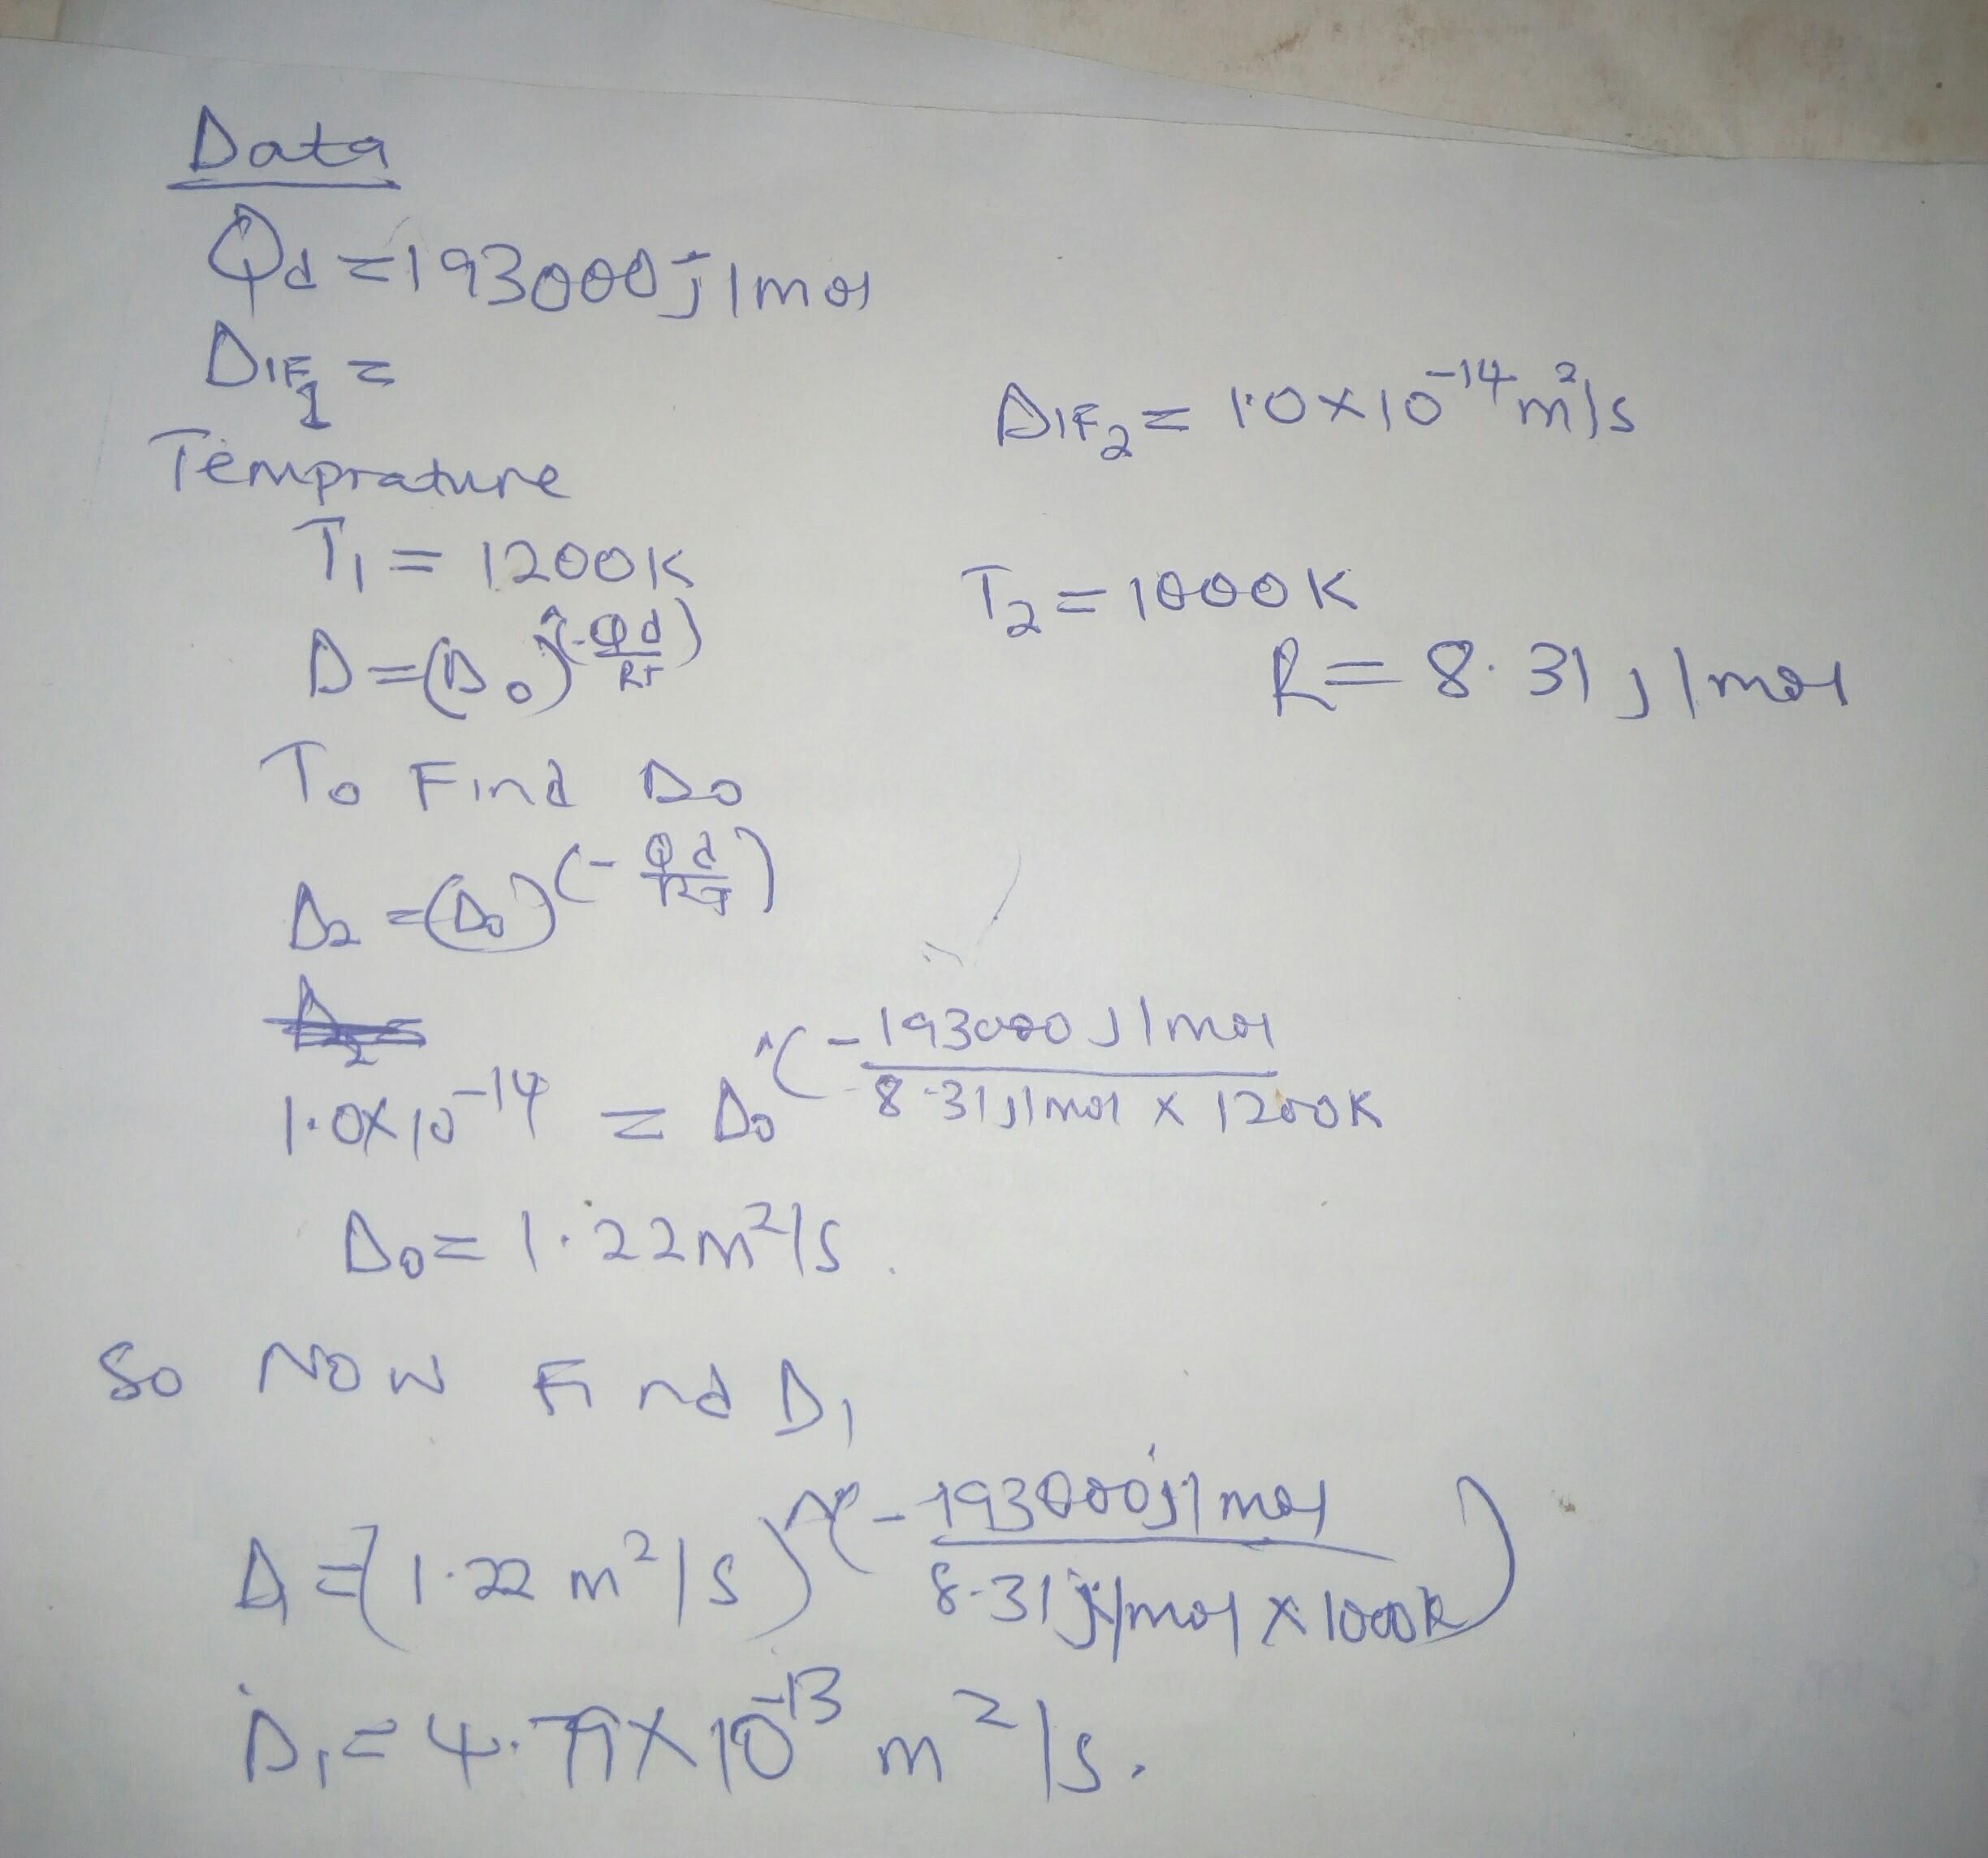 Data
Qd = 193000 j/mol
DIF1 =
DIF2 = 1.0x10^-14 m^2/s
Temprature
T1 = 1200K
T2 = 1000K
D = (Do)^(-Qd/RT)
R = 8.31 J/mol
To Find Do
D2 = (Do)^(-Qd/RT)
D2
1.0x10^-14 = Do^(-193000 J/mol / 8.31 J/mol x 1200K
Do = 1.22 m^2/s.
So Now Find D1
D1 = (1.22 m^2/s)^(-193000 J/mol / 8.31 J/mol x 1000K)
D1 = 4.79x10^-13 m^2/s.